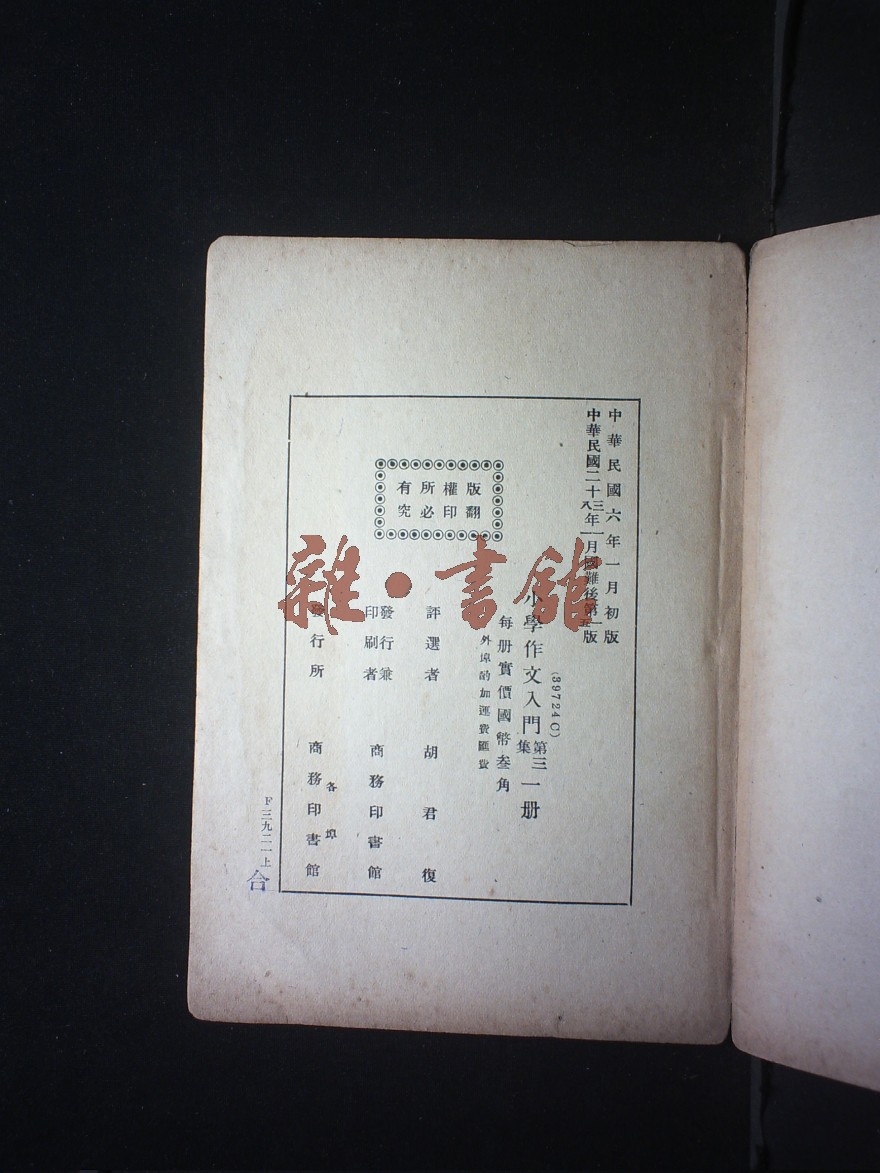 中華民國六年一月初版
中華民國二十三年一月國難後第一版
八 一 五
(39724C)
小學作文入門第三集一册
每册實價國幣叁角
外埠酌加運費匯費
版權所有
翻印必究
評選者 胡君復
發行兼
印刷者 商務印書館
各埠
發行所 商務印書館
F三九二一上
合
雜·書館